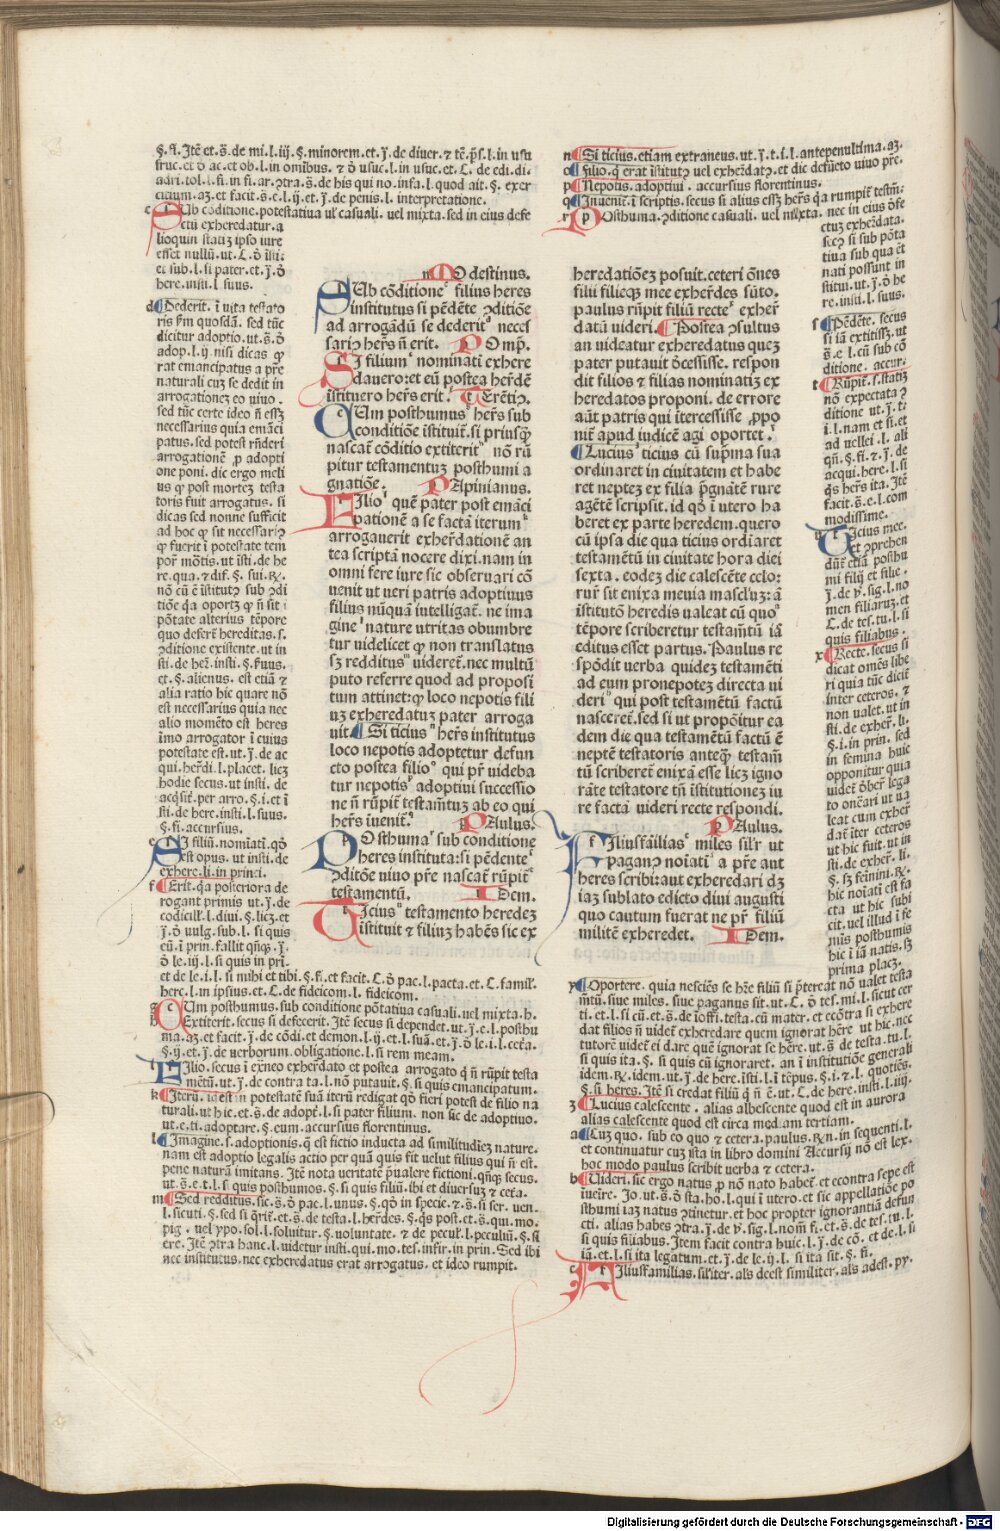 §. fi. Itē et. s̄. de mi. l. iij. §. minorem. et. j̄. de diuer. ⁊ tē. p̄s. l. in usu
fruc. et ō ac. et ob. l. in omībus. ⁊ ō usuc. l. in usuc. et. C. de edi. di.
adri. tol. l. fi. in fi. ar. ꝯtra. s̄. de his qui no. infa. l. quod ait. §. exer
citium. aꝫ. et facit. s̄. e. l. ij. et. j̄. de penis. l. interpretatione.
Ub cōditione. potestatiua uľ casuali. uel mixta. sed in eius defe
ctū exheredatur. a
lioquin statiꝫ ipso iure
esset nullū. ut. C. ō isti:
et sub. l. si pater. et. j̄. ō
here. insti. l. suus.
Dederit. ī uita testato
ris p̄m quosdā. sed tūc
dicitur adoptio. ut. s̄. ō
adop. l. ij. nisi dicas ꝙ
rat emancipatus a p̄re
naturali cuꝫ se dedit in
arrogationeꝫ eo uiuo.
sed tūc certe ideo n̄ eēꝫ
necessarius quia emāci
patus. sed potest rn̄deri
arrogationē ꝓ adopti
one poni. dic ergo meli
us ꝙ post morteꝫ testa
toris fuit arrogatus. si
dicas sed nonne sufficit
ad hoc ꝙ sit necessariꝰ
ꝙ fuerit ī potestate tem
por̄ mōtis. ut isti. de he
re. qua. ⁊ dif. §. sui. ꝶ.
nō cū ē īstitutꝰ sub ꝯdi
tiōe q̄a oportꝫ ꝙ n̄ sit ī
pōtate alterius tēpore
quo defert̄ hereditas. s.
ꝯditione existente. ut in
sti. de her̄. insti. §. s̄uus.
et. §. alienus. est etiā ⁊
alia ratio hic quare nō
est necessarius quia nec
alio momēto est heres
īmo arrogator ī cuius
potestate est. ut. j̄. de ac
qui. her̄di. l. placet. licꝫ
hodie secus. ut insti. de
acq̄sit̄. per arro. §. i. et ī
sti. de here. insti. l. suus.
§. fi. accursius.
I filiū. nomīati. qꝰ
est opus. ut insti. de
exhere. li. in princi.
Erit. q̄a posteriora de
rogant primis ut. j̄. de
codicill. l. diui. §. licꝫ. et
j̄. ō uulg. sub. l. si quis
eū. ī prin. fallit qn̄qꝫ. j̄.
ō le. iij. l. si quis in pri.
et de le. i. l. si mihi et tibi. §. fi. et facit. C. ō pac. l. pacta. et. C. famił.
herc. l. in ipsius. et. C. de fideicom. l. fideicom.
Um posthumus. sub conditione pōtatiua casuali. uel mixta. h.
Extiterit. secus si defecerit. Itē secus si dependet. ut. j̄. e. l. posthu
ma. aꝫ. et facit. j̄. de cōdi. et demon. l. ij. et. l. suā. et. j̄. ō le. i. l. cet̄a.
§. ij. et. j̄. de uerborum. obligatione. l. si rem meam.
Ilio. secus ī exneo exher̄dato et postea arrogato q̄ n̄ rūpit testa
mētū. ut. j̄. de contra ta. l. nō putauit. §. si quis emancipatum.
Iterū. id est in potestatē suā iterū redigat qꝰ fieri potest de filio na
turali. ut hic. et. s̄. de adopt̄. l. si pater filium. non sic de adoptiuo.
ut. e. ti. adoptare. §. eum. accursius florentinus.
Imagine. s. adoptionis. q̄ est fictio inducta ad similitudineꝫ nature.
nam est adoptio legalis actio per quā quis fit uelut filius qui n̄ est.
pene naturā imitans. Itē nota ueritatē p̄ualere fictioni. qn̄qꝫ secus.
ut. s̄. e. t. l. si quis posthumos. §. si quis filiū. ibi et diuersuꝫ ⁊ cet̄a.
Sed redditus. sic. s̄. ō pac. l. unus. §. qꝰ in specie. ⁊. s̄. si ser. uen.
l. sicuti. §. sed si q̄rit̄. et. s̄. de testa. l. her̄des. §. q̄s post. et. s̄. qui. mo.
pig. uel ypo. sol. l. soluitur. §. uoluntate. ⁊ de pecuł. l. peculiū. §. si
ere. Itē ꝯtra hanc. l. uidetur insti. qui. mo. tes. infir. in prin. Sed ibi
nec institutus. nec exheredatus erat arrogatus. et ideo rumpit.
MOdestinus.
SUb cōditione filius heres
institutus si pēdēte ꝯditiōe
ad arrogādū se dederit neces
sariꝰ her̄s n̄ erit. POmp.
SI filium nominati exhere
dauero: et eū postea her̄dē
īstituero her̄s erit. TErētiꝰ.
CUm posthumus her̄s sub
conditiōe īstituit̄. si priusqꝫ
nascat̄ cōditio extiterit nō rū
pitur testamentuꝫ posthumi a
gnatiōe. PApinianus.
FIlio quē pater post emāci
pationē a se factā iterum
arrogauerit exher̄dationē an
tea scriptā nocere dixi. nam in
omni fere iure sic obseruari cō
uenit ut ueri patris adoptiuus
filius nūquā intelligat̄. ne ima
gine nature ueritas obumbre
tur uidelicet ꝙ non translatus
sꝫ redditus uideret̄. nec multū
puto referre quod ad proposi
tum attinet: ꝙ loco nepotis fili
uꝫ exheredatuꝫ pater arroga
uit. Si ticius her̄s institutus
loco nepotis adoptetur defun
cto postea filio qui pr̄ uideba
tur nepotis adoptiui successio
ne n̄ rūpit̄ testam̄tuꝫ ab eo qui
her̄s īuenit̄. PAulus.
POsthuma sub conditione
heres instituta: si pēdente
ꝯditōe uiuo pr̄e nascat̄ rūpit̄
testamentū. IDem.
TIcius testamento heredeꝫ
īstituit ⁊ filiuꝫ habēs sic ex
Si ticius. etiam extraneus. ut. j̄. t. i. l. antepenultima. aꝫ.
Filio. q̄ erat īstitutꝰ uel exher̄datꝰ. et dic defūcto uiuo p̄re.
Nepotis. adoptiui. accursius florentinus.
Inuenit̄. ī scriptis. secus si alius esset her̄s q̄a rumpit̄ testm̄:
Osthuma. ꝯditione casuali. uel mixta. nec in eius ōfe
ctuꝫ exher̄data.
secꝰ si sub pōta
tiua sub qua n̄t
nati possunt in
stitui. ut. j̄. ō he
re. insti. l. suus.
Pēdēte. secus
si iā extitissꝫ. ut
s̄. e. l. cū sub cō
ditione. accur.
Rūpit̄. s. statiꝫ
nō expectata ꝯ
ditione ut. j̄. ti
i. l. nam et si. et
ad uellei. l. ali
qn̄. §. fi. ⁊. j̄. de
acqui. here. l. si
q̄s her̄s ita. Itē
facit. s̄. e. l. com
modissime.
Icius mee.
et ꝯprehen
dūt̄ etiā posthu
mi filij et filie.
j̄. de ꝟ. sig. l. no
men filiaruꝫ. et
C. de tes. tu. l. si
quis filiabus.
Recte. secus si
dicat omēs libe
ri quia tūc dicit̄
inter ceteros. ⁊
non ualet. ut in
sti. de exher̄. li.
§. i. in prin. sed
in femina huic
opponitur quia
uidet̄ ōber̄ lega
to onēari ut ua
leat cum exher
dat̄ iter ceteros
ut hic fuit. ut in
sti. de exher̄. li.
§. sꝫ feinini. ꝶ.
hic noīati est fa
cta ut hic subi
cit. uel illud ī fe
mīs posthumis
hic ī iā natis. sꝫ
prima placꝫ.
heredatiōeꝫ posuit. ceteri ōnes
filii filieqꝫ mee exher̄des sūto.
paulus rūpit filiū recte exher̄
datū uideri. Postea ꝯsultus
an uideatur exheredatus queꝫ
pater putauit ōcessisse. respon
dit filios ⁊ filias nominatiꝫ ex
heredatos proponi. de errore
aūt patris qui ītercessisse ꝓpo
nit̄ apud iudicē agi oportet.
Lucius ticius cū sup̄ma sua
ordinaret in ciuitatem et habe
ret nepteꝫ ex filia p̄gnātē rure
agētē scripsit. id qꝰ ī utero ha
beret ex parte heredem. quero
cū ipsa die qua ticius ordīaret
testamētū in ciuitate hora diei
sexta. eodeꝫ die calescēte celo:
rur̄ sit enixa meuia masc̄luꝫ: ā
īstitutō heredis ualeat cū quo
tēpore scriberetur testam̄tū iā
editus esset partus. Paulus re
spōdit uerba quideꝫ testamēti
ad eum pronepoteꝫ directa ui
deri qui post testamētū factū
nasceret̄. sed si ut propōitur ea
dem die qua testamētū factū ē
neptē testatoris anteqꝫ testam̄
tū scriberet̄ enixā esse licꝫ igno
rāte testatore tn̄ īstitutioneꝫ iu
re factā uideri recte respondi.
PAulus.
FIliusfāilias miles sil̄r ut
paganꝰ noīati a pr̄e aut
heres scribi: aut exheredari dꝫ
iaꝫ sublato edicto diui augusti
quo cautum fuerat ne pr̄ filiū
militē exheredet. IDem.
Oportere. quia nesciēs se hr̄e filiū si p̄terēat nō ualet testa
m̄tū. siue miles. siue paganus sit. ut. C. ō tes. mi. l. sicut cer
ti. et. l. si cū. et. s̄. de īoffi. testa. cū mater. et ecōtra si exhere
dat filios n̄ uidet̄ exheredare quem ignorat hēre ut hic. nec
tutorē uidet̄ ei dare quē ignorat se hēre. ut. s̄. de testa. tu. l.
si quis ita. §. si quis cū ignoraret. an ī institutiōe generali
idem. ꝶ. idem. ut. j̄. de here. īsti. l. ī tēpus. §. i. ⁊. l. quotiēs.
§. si heres. Itē si credat filiū q̄ n̄ ē. ut. C. de here. insti. l. iiij.
Lucius calescente. alias albescente quod est in aurora
alias calescente quod est circa mediam tertiam.
Cuꝫ quo. sub eo quo ⁊ cetera. paulus. ꝶn. in sequenti. l.
et continuatur cuꝫ ista in libro domini Accursij nō est lex.
hoc modo paulus scribit uerba ⁊ cetera.
Uideri. sic ergo natus ꝓ nō nato habet̄. et econtra sepe est
īuēire. Io. ut. s̄. ō sta. hō. l. qui ī utero. et sic appellatiōe po
sthumi iaꝫ natus ꝯtinetur. et hoc propter ignorantiā defun
cti. alias habes ꝯtra. j̄. de ꝟ. sig. l. nom̄. fi. et. s̄. de tes. tu. l.
si quis filiabus. Item facit contra huic. l. j̄. de cō. et de. l. si
iā. et. l. si ita legatum. et. j̄. de le. ij. l. si ita sit. §. fi.
Iliusfamilias. siłiter. als deest similiter. als adest. py.
Digitalisierung gefördert durch die Deutsche Forschungsgemeinschaft - DFG